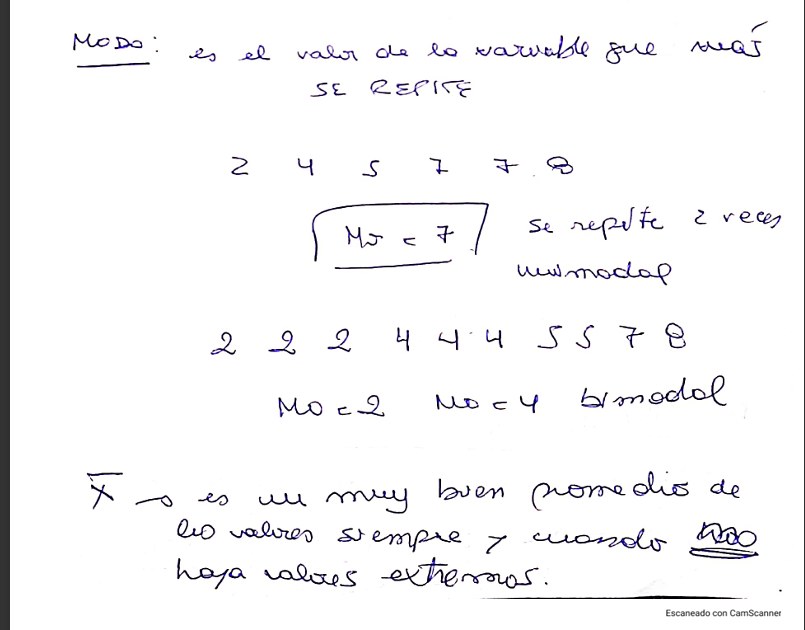 MODO: es el valor de la variable que más
SE REPITE
2 4 5 7 7 8
Mo = 7 se repite 2 veces
unimodal
2 2 2 4 4 4 5 5 7 8
Mo = 2 Mo = 4 bimodal
X̄ → es un muy buen promedio de
los valores siempre y cuando NO
haya valores extremos.
Escaneado con CamScanner